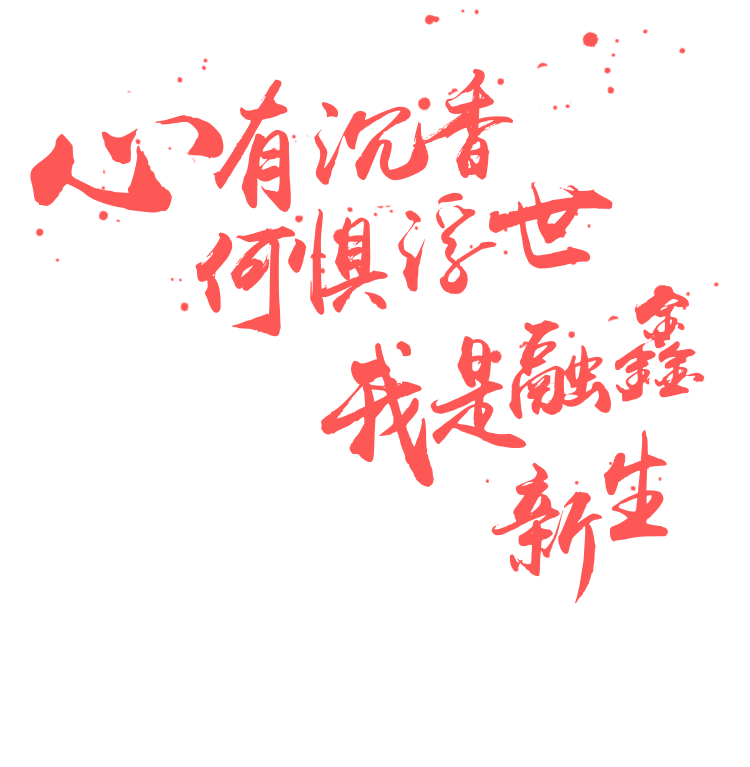 心有沉香
何惧浮世
我是融鑫
新生